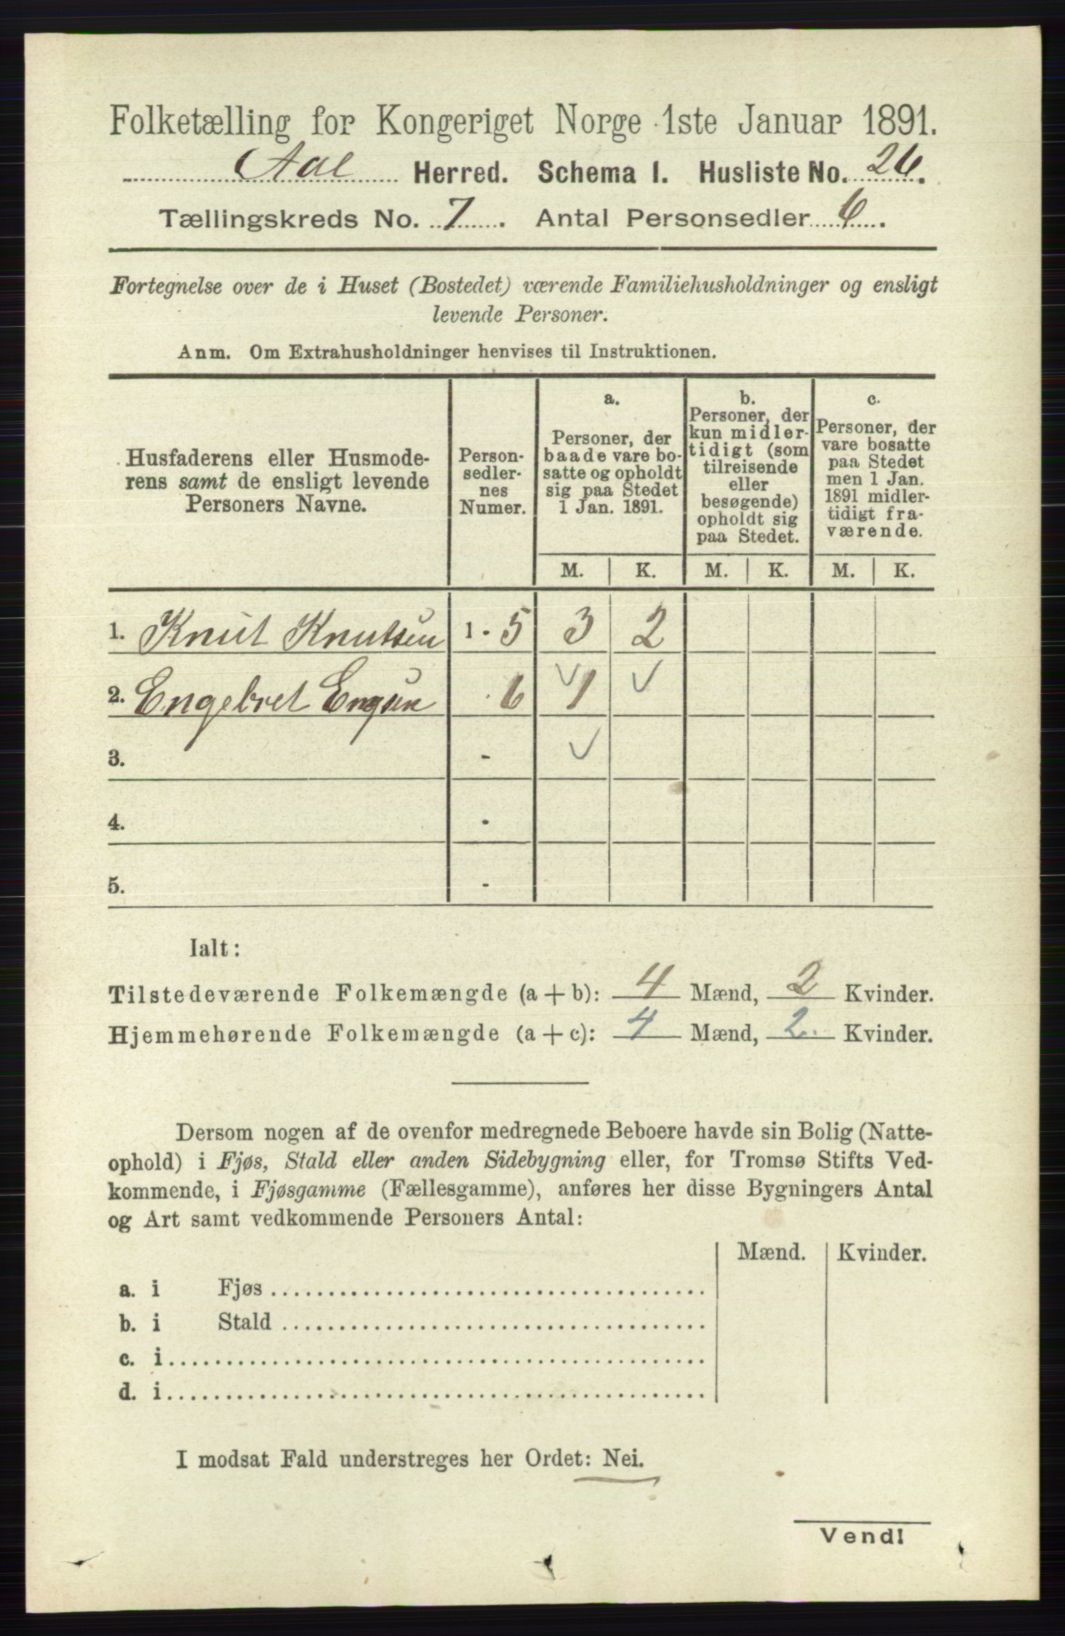 Folketælling for Kongeriget Norge 1ste Januar 1891.
Aal Herred. Schema I. Husliste No. 26.
Tællingskreds No. 7. Antal Personsedler 6.
Fortegnelse over de i Huset (Bostedet) værende Familiehusholdninger og ensligt
levende Personer.
Anm. Om Extrahusholdninger henvises til Instruktionen.
Husfaderens eller Husmode-
rens samt de ensligt levende
Personers Navne.
Person-
sedler-
nes
Numer.
a.
Personer, der
baade vare bo-
satte og opholdt
sig paa Stedet
1 Jan. 1891.
b.
Personer, der
kun midler-
tidigt (som
tilreisende
eller
besøgende)
opholdt sig
paa Stedet.
c.
Personer, der
vare bosatte
paa Stedet
men 1 Jan.
1891 midler-
tidigt fra-
værende.
M. K. M. K. M. K.
1. Knut Knutsen 1 - 5 3 2
2. Engebret 6 1
3. -
4. -
5. -
Ialt:
Tilstedeværende Folkemængde (a + b): 4 Mænd, 2 Kvinder.
Hjemmehørende Folkemængde (a + c): 4 Mænd, 2. Kvinder.
Dersom nogen af de ovenfor medregnede Beboere havde sin Bolig (Natte-
ophold) i Fjøs, Stald eller anden Sidebygning eller, for Tromsø Stifts Ved-
kommende, i Fjøsgamme (Fællesgamme), anføres her disse Bygningers Antal
og Art samt vedkommende Personers Antal:
Mænd. Kvinder.
a. i Fjøs
b. i Stald
c. i
d. i
I modsat Fald understreges her Ordet: Nei.
Vend!